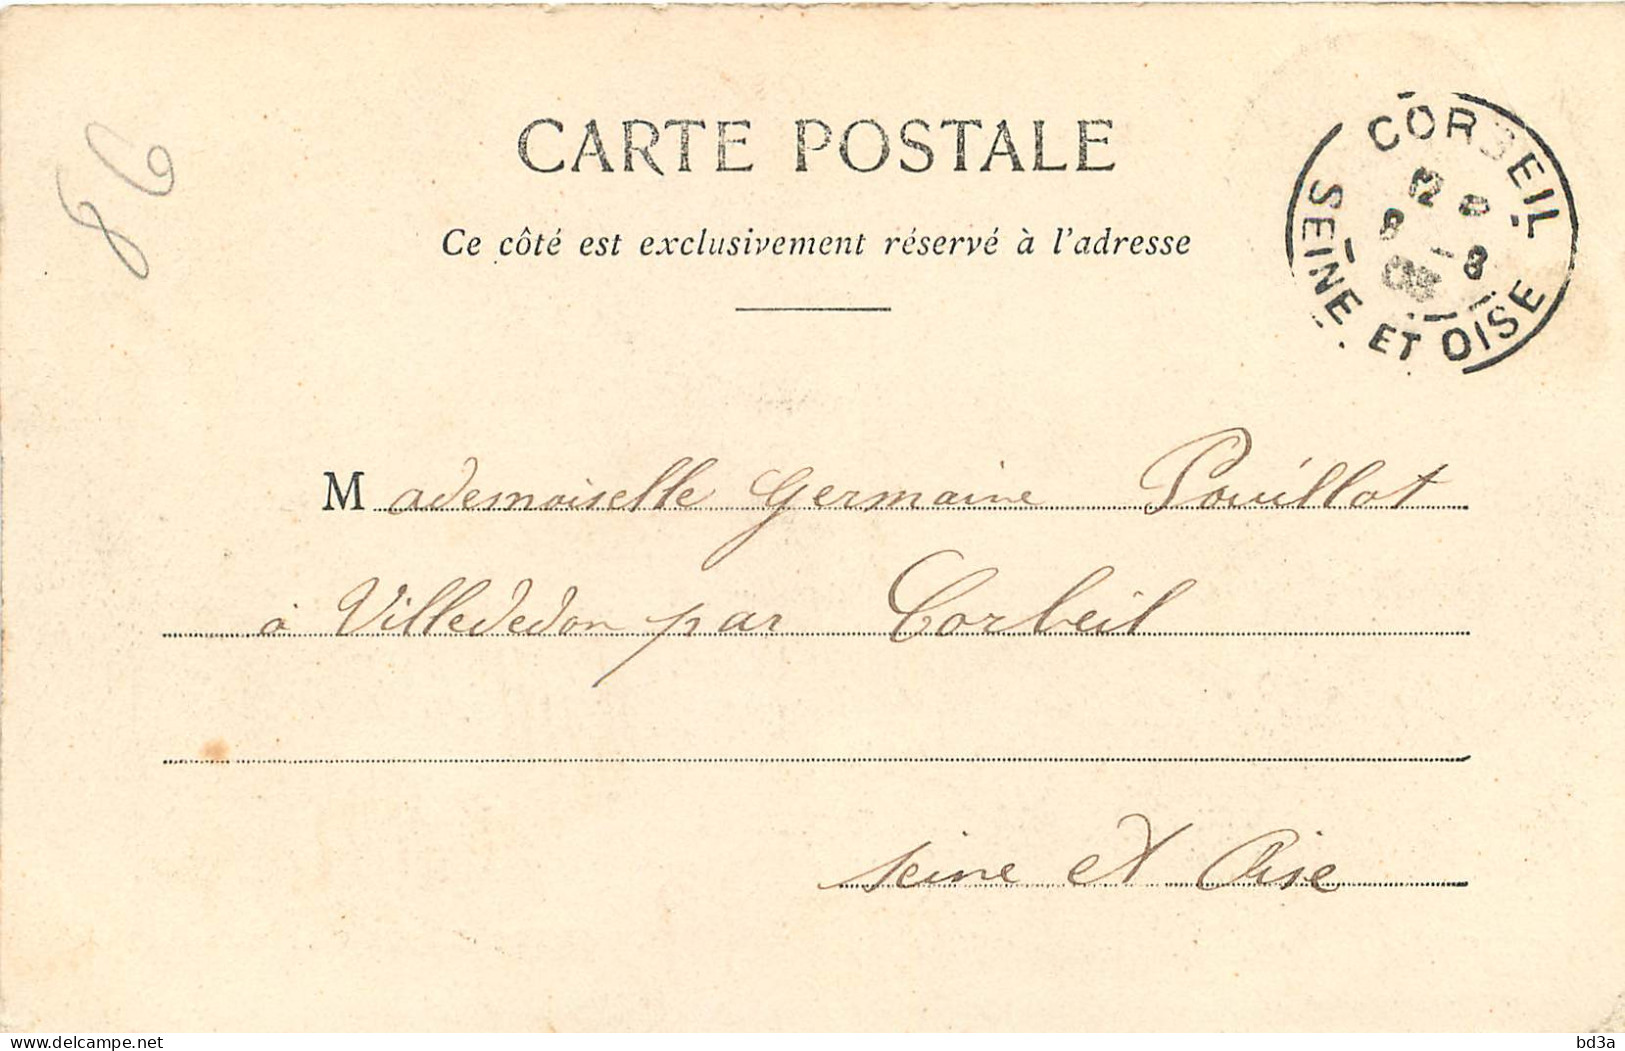 86
CARTE POSTALE
Ce côté est exclusivement réservé à l'adresse
CORBEIL
SEINE ET OISE
Mademoiselle Germaine Pouillot
à Villededon par Corbeil
Seine et Oise
delcampe.net
bd3a